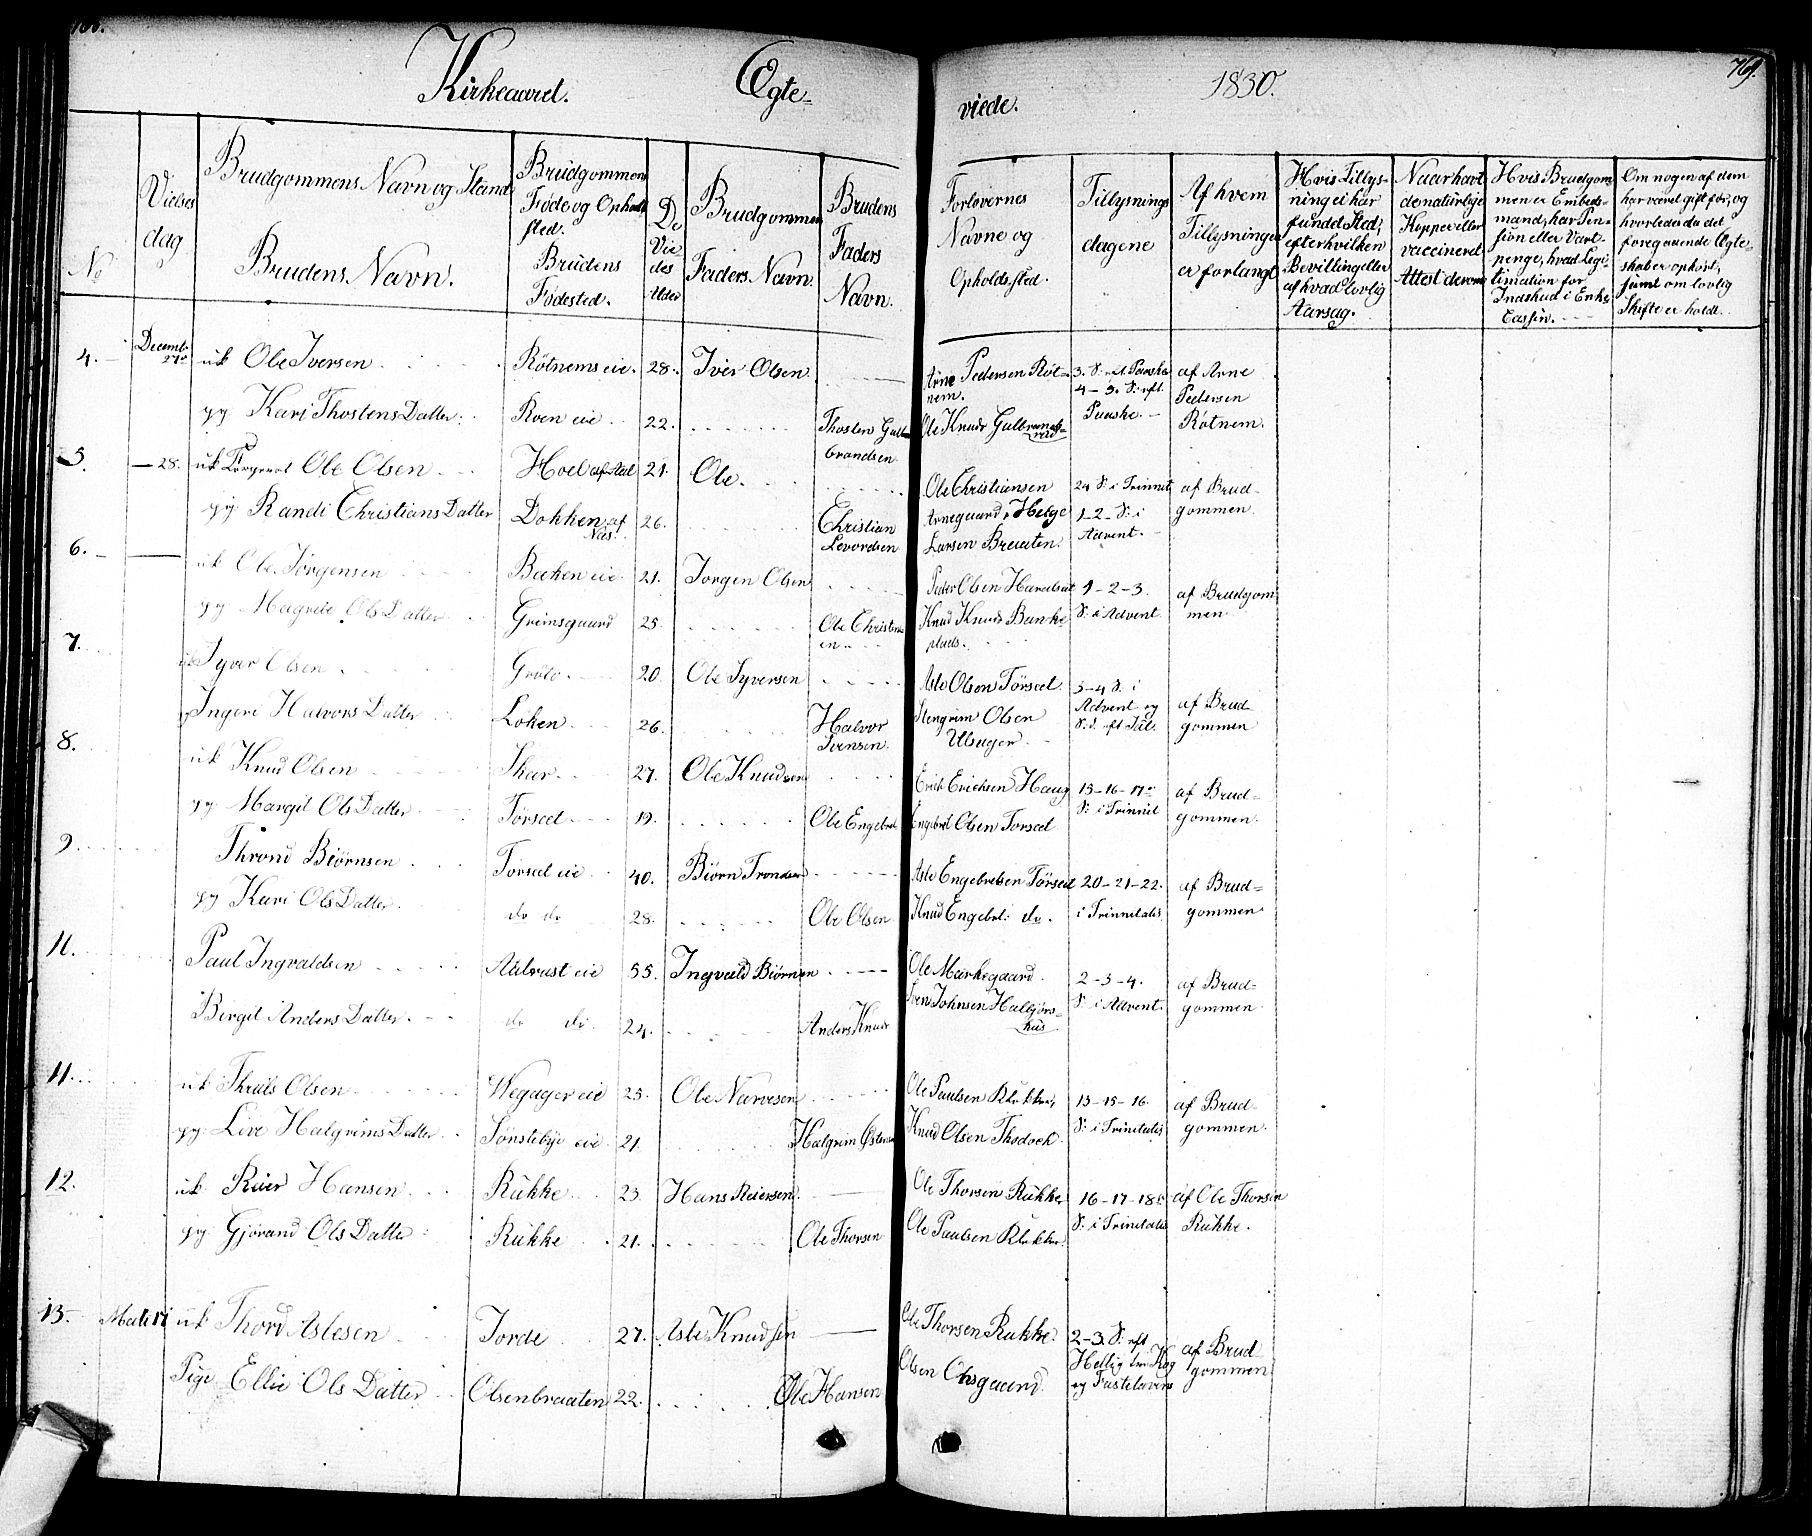 Kirkeaard. Ægte-
viede. 1830. 769.
No
Vielses dag
Brudgommens Navn og Stand
Brudens Navn.
Brudgommens Føde og Opholdsted.
Brudens Fødested.
De Viedes Alder
Brudgommens Faders Navn.
Brudens Faders Navn.
Forlovernes Navne og Opholdssted.
Tillysnings dagene
Af hvem Tillysningen er forlangt
Hvis Tillysning ei har fundet Sted, efter hvilken Bevilling eller af hvad lovlig Aarsag.
Naar havt de natürlige Kopper eller vaccineret Attest derom
Hvis Brudgommen er Embedsmand, har Pension eller Vartpenge, hvad Legitimation for Indskud i Enke Cassen.
Om nogen af dem har været gift før, og hvorledes da det foregaaende Ægteskab er ophørt, samt om lovlig Skifte er holdt.
4. Decemb. 27de uk Ole Iversen Røtnems eie. 28. Iver Olsen Arne Pedersen Røtnem. 3. S. eft Paaske 4 - 3. S. eft. Paaske. af Arne Pedersen Røtnem.
pg Kari Thostens Datter Roen eie 22. Thosten Gulbrandsen Ole Knuds Gulbrands
5. — 28. uk Ole Olsen Hoel af Aal 21. Ole. Ole Christiansen Arnegaard, Helge Larsen Braaten. 24 S: i Trinnit 1-2- S: i Advent. af Brudgommen
pg Randi Christians Datter Dokken af Nas. 26. Christian Levordsen
6. — uk Ole Jørgensen Bækken eie. 21. Jørgen Olsen Peder Olsen 1-2-3. S: i Advent af Brudgommen
pg Magrete Ols Datter Grimsgaard 25. Ole Christensen Knud Knuds
7. Syver Olsen Grøto 20. Ole Syversen Asle Olsen Tørsed 3-4 S. i Advent og S. eft Jul. af Brudgommen
Ingeri Halvors Datter Løken 26. Halvor Svensen. Stengrim Olsen Ulsager
8. uk Knud Olsen Skar 27. Ole Knudsen Erich Erichsen Haug 15-16-17de S: i Trinnit af Brudgommen.
pg Margit Ols Datter Tørsed 19. Ole Engebret Engebret Olsen Torsed
9. Thrond Biørnsen Torsed eie 40. Biørn Trondsen Asle Engebretsen Tørsed 20-21-22. i Trinnitatis af Brudgommen
pg Kari Ols Datter do do 28. Ole Olsen Knud Engebret: do.
11. Paul Ingvaldsen Aalrust eie 55. Ingvald Biørnsen Ole Markegaard 2-3-4. S: i Advent. af Brudgommen
Birgit Anders Datter. do do. 24. Anders Knuds Sven Johnsen Halbjørshus
11. uk Thrüls Olsen Wegager eie 25. Ole Narvesen Ole Paulsen 13-15-16. S: i Trinitatis af Brudgommen.
pg. Live Halgrims Datter Sønsteby eie 21. Halgrim Østensen Knud Olsen Thodock
12. uk Reier Hansen Rükke 23. Hans Reiersen. Ole Thorsen Rükke 16-17-18 S: i Trinitatis af Ole Thorsen Rükke.
pg. Gjørand Ols Datter Rükke 21. Ole Thorsen Ole Paulsen
13 uk Thord Aslesen Torde 27. Asle Knudsen Ole Thorsen Rukke. 2-3. S. eft Hellig tre Kog og Fastelavns af Brudgommen
Pige Ellie Ols Datter Olsenbraaten 22. Ole Hansen Olsen